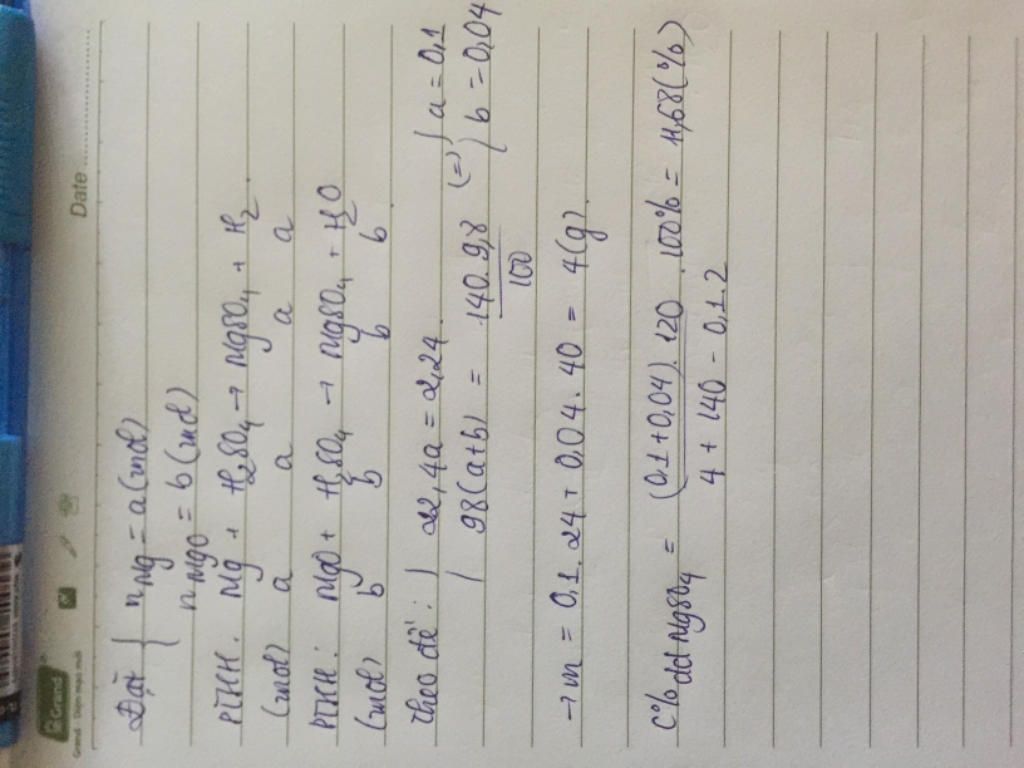 Grand
Date
Đặt { n Mg = a (mol)
n MgO = b (mol)
PTHH: Mg + H2SO4 → MgSO4 + H2.
(mol) a a a a
PTHH: MgO + H2SO4 → MgSO4 + H2O
(mol) b b b b
Theo đề: { 22,4a = 2,24.
98(a+b) = 140.9,8 / 100 (=) { a = 0,1
b = 0,04
→ m = 0,1.24 + 0,04.40 = 4(g).
C% dd MgSO4 = (0,1+0,04).120 / 4 + 140 - 0,1.2 .100% = 11,68(%)